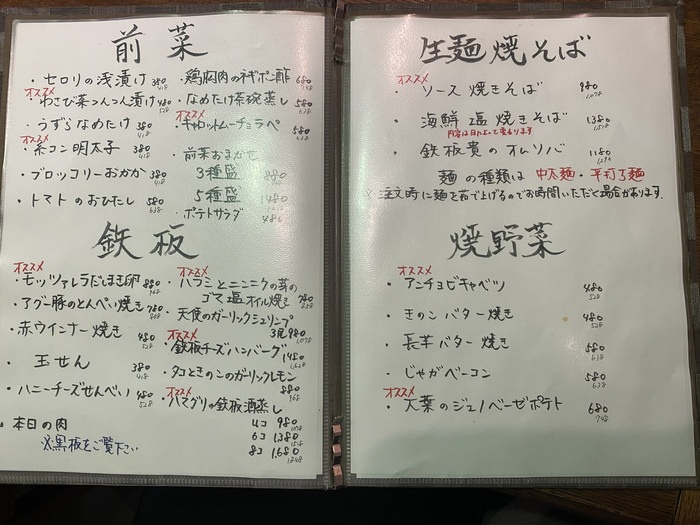 前菜
・セロリの浅漬け 380 418
オススメ
・わさび菜つんつん漬け 480 528
・うずらなめたけ 380 418
オススメ
・糸コン明太子 380 418
・ブロッコリーおかか 380 418
・トマトのおひたし 580 638
・鶏胸肉のネギポン酢 680 748
・なめたけ茶碗蒸し 580 638
オススメ
・キャロットムーチョラペ 580 638
・前菜おまかせ
3種盛 880
5種盛 1480
・ポテトサラダ 480
鉄板
オススメ
・モッツァレラだしまき卵 880 968
・アグー豚のとんぺい焼き 780 858
・赤ウインナー焼き 480 528
・玉せん 380 418
・ハニーチーズせんべい 480 528
・本日の肉
※黒板をご覧下さい
オススメ
・ハツミとニンニクの芽の
ゴマ塩オイル焼き 780 858
・天使のガーリックシュリンプ
3尾 980 1,078
オススメ
・鉄板チーズハンバーグ 1480 1,628
・タコときのこのガーリックレモン
880 968
オススメ
・ハマグリの鉄板酒蒸し
4コ 980 1078
6コ 1,380 1518
8コ 1,680 1848
生麺焼そば
オススメ
・ソース焼きそば 980 1,078
・海鮮塩焼きそば 1380 1,518
内容は日によって変わります
・鉄板貴のオムソバ 1180 1,298
麺の種類は 中太麺・平打ち麺
※注文時に麺を茹で上げるのでお時間いただく場合があります。
焼野菜
オススメ
・アンチョビキャベツ 480 528
・きのこバター焼き 480 528
・長芋バター焼き 580 638
・じゃがベーコン 580 638
オススメ
・大葉のジェノベーゼポテト 680 748